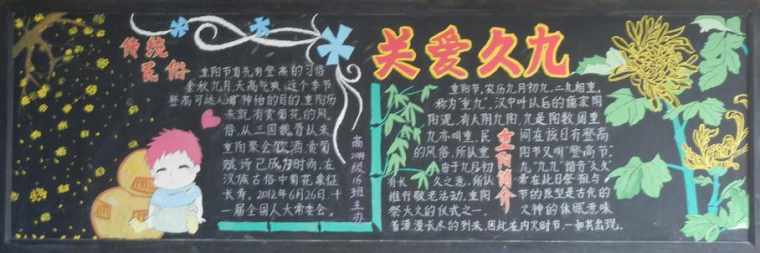 关爱久九
传统
民俗
重阳节首先有登高的习俗
金秋九月天高气爽,这个季节
登高可达心旷神怡的目的,重阳历
来就有赏菊花的风
俗,从三国魏晋以来
重阳聚会饮酒,赏菊
赋诗已成为时尚,在
汉族古俗中菊花象征
长寿。2012年6月26日十
一届全国人大常委会。
班主办
重阳简介
重阳节,农历九月初九,二九相重,
称为"重九",汉中叶以后的儒家阴
阳观,有六阴九阳,九是阳数,固重
九亦叫重
间在该日有登高
的风俗,所以重
阳节又叫"登高节"
由于九月初
九"九九"谐音"久久"
有长
久之意,所以
常在此日祭祖与
推行敬老活动,重阳
节的原型是古代的
祭大火的仪式之一。
火神的休眠意味
着漫漫长冬的到来,因此在内火时节,一如其出现,